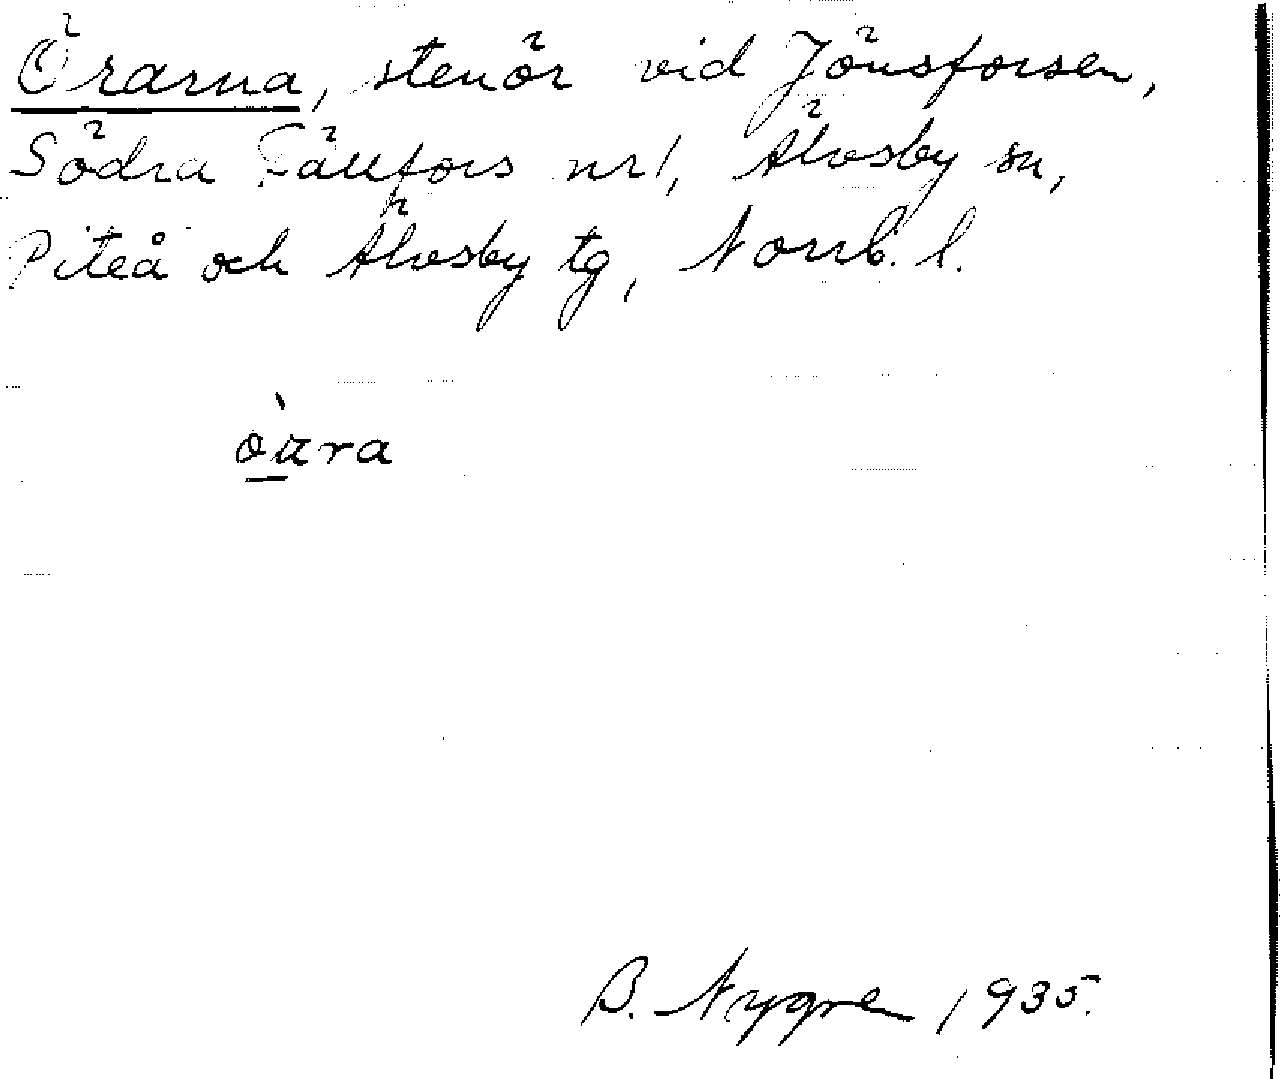 Örarna, stenör vid Jönsforsen,
Södra Fällfors nr 1, Älvsby sn,
Piteå och Älvsby tg, Norrb. l.
B. Nygren 1935.